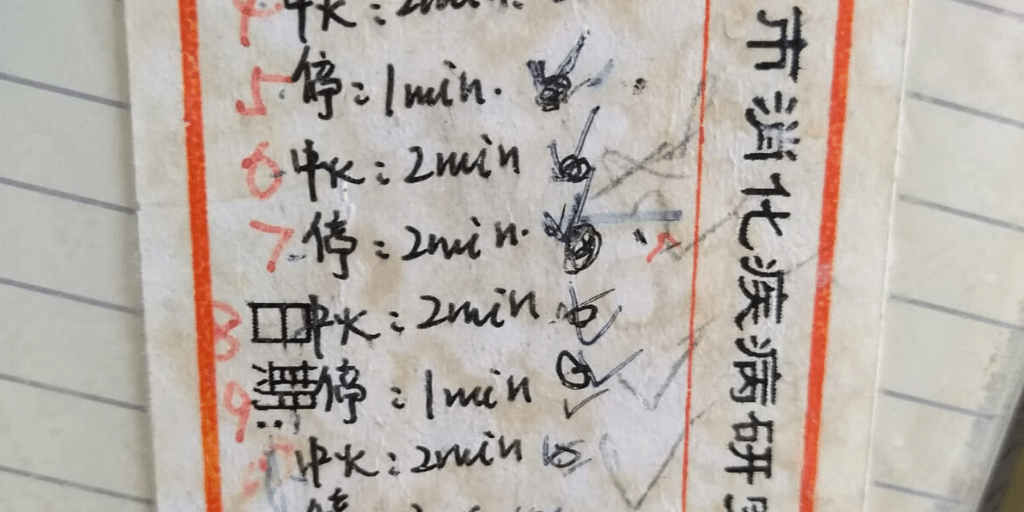 中火:2min.
5.停:1min.
6.中火:2min
7.停:2min.
8 中火:2min
9 停:1min
中火:2min
停:
市消化疾病研